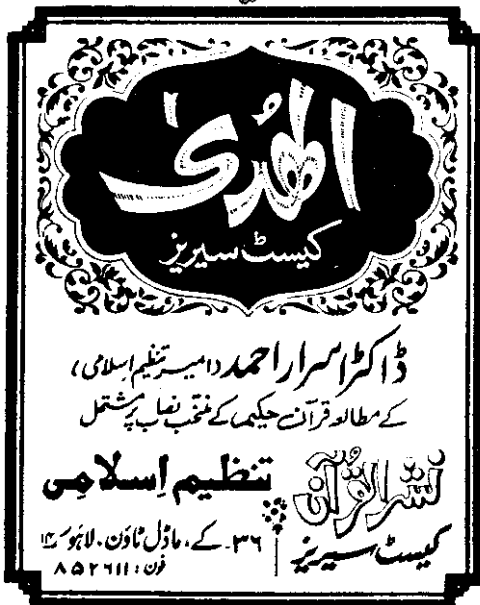 الھُدیٰ
کیسٹ سیریز
ڈاکٹر اسرار احمد (امیر تنظیم اسلامی)
کے مطالعہ قرآن حکیم کے منتخب نصاب پر مشتمل
نشر القرآن
کیسٹ سیریز
تنظیم اِسلامِی
۳۶۔ کے، ماڈل ٹاؤن، لاہور ۱۴
فون: ۸۵۲۶۱۱